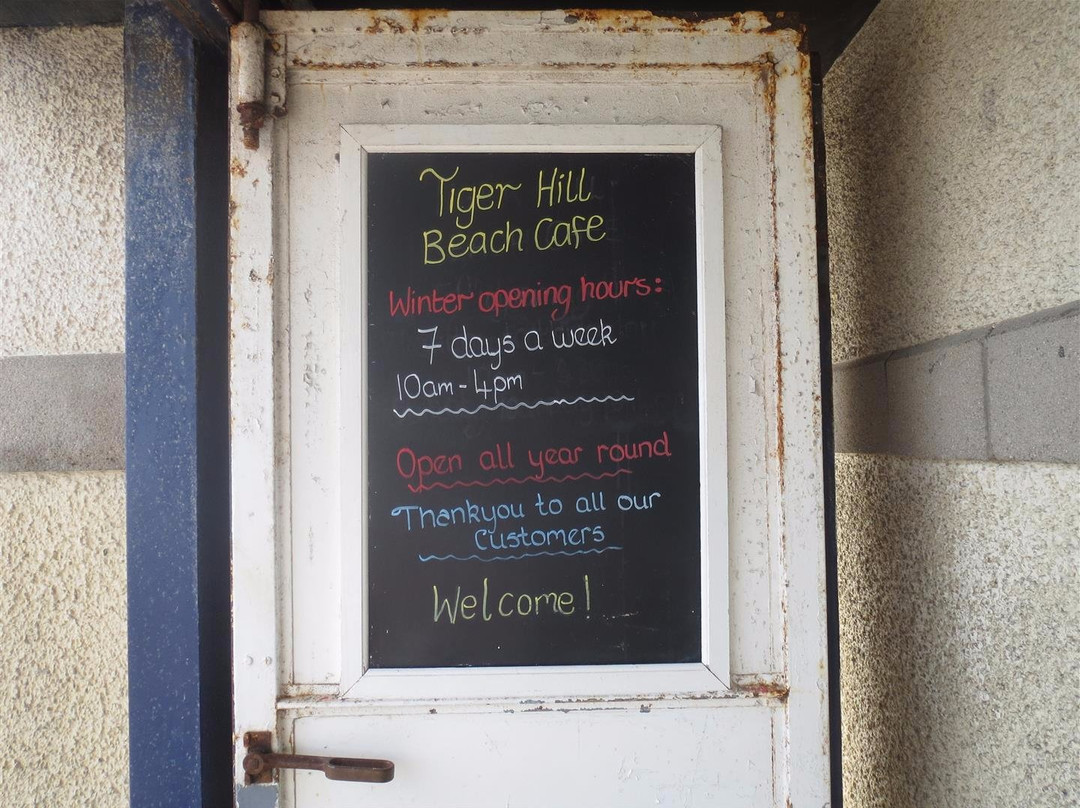 Tiger Hill
Beach Cafe
Winter opening hours:
7 days a week
10am-4pm
Open all year round
Thankyou to all our
Customers
Welcome!